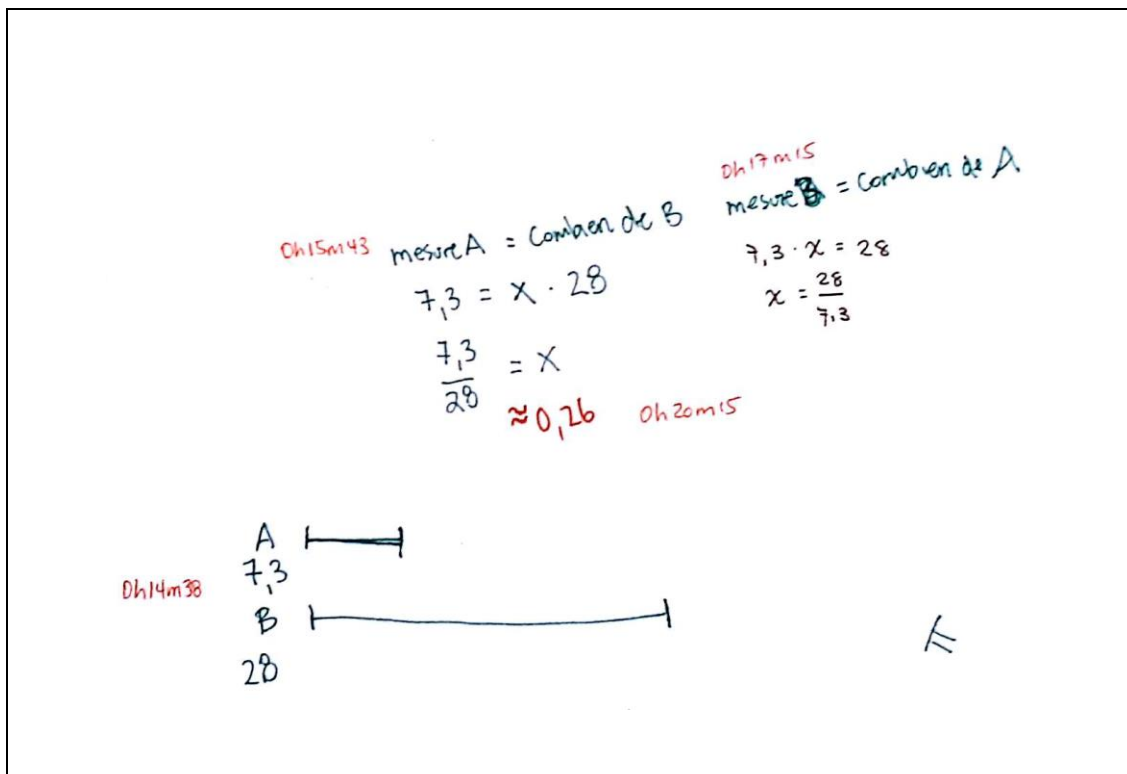 0h15m43 mesure A = Combien de B
7,3 = x · 28
7,3
28
= x
≈ 0,26 0h20m15
0h17m15
mesure B = Combien de A
7,3 · x = 28
x = 28
7,3
A
7,3
0h14m38
B
28